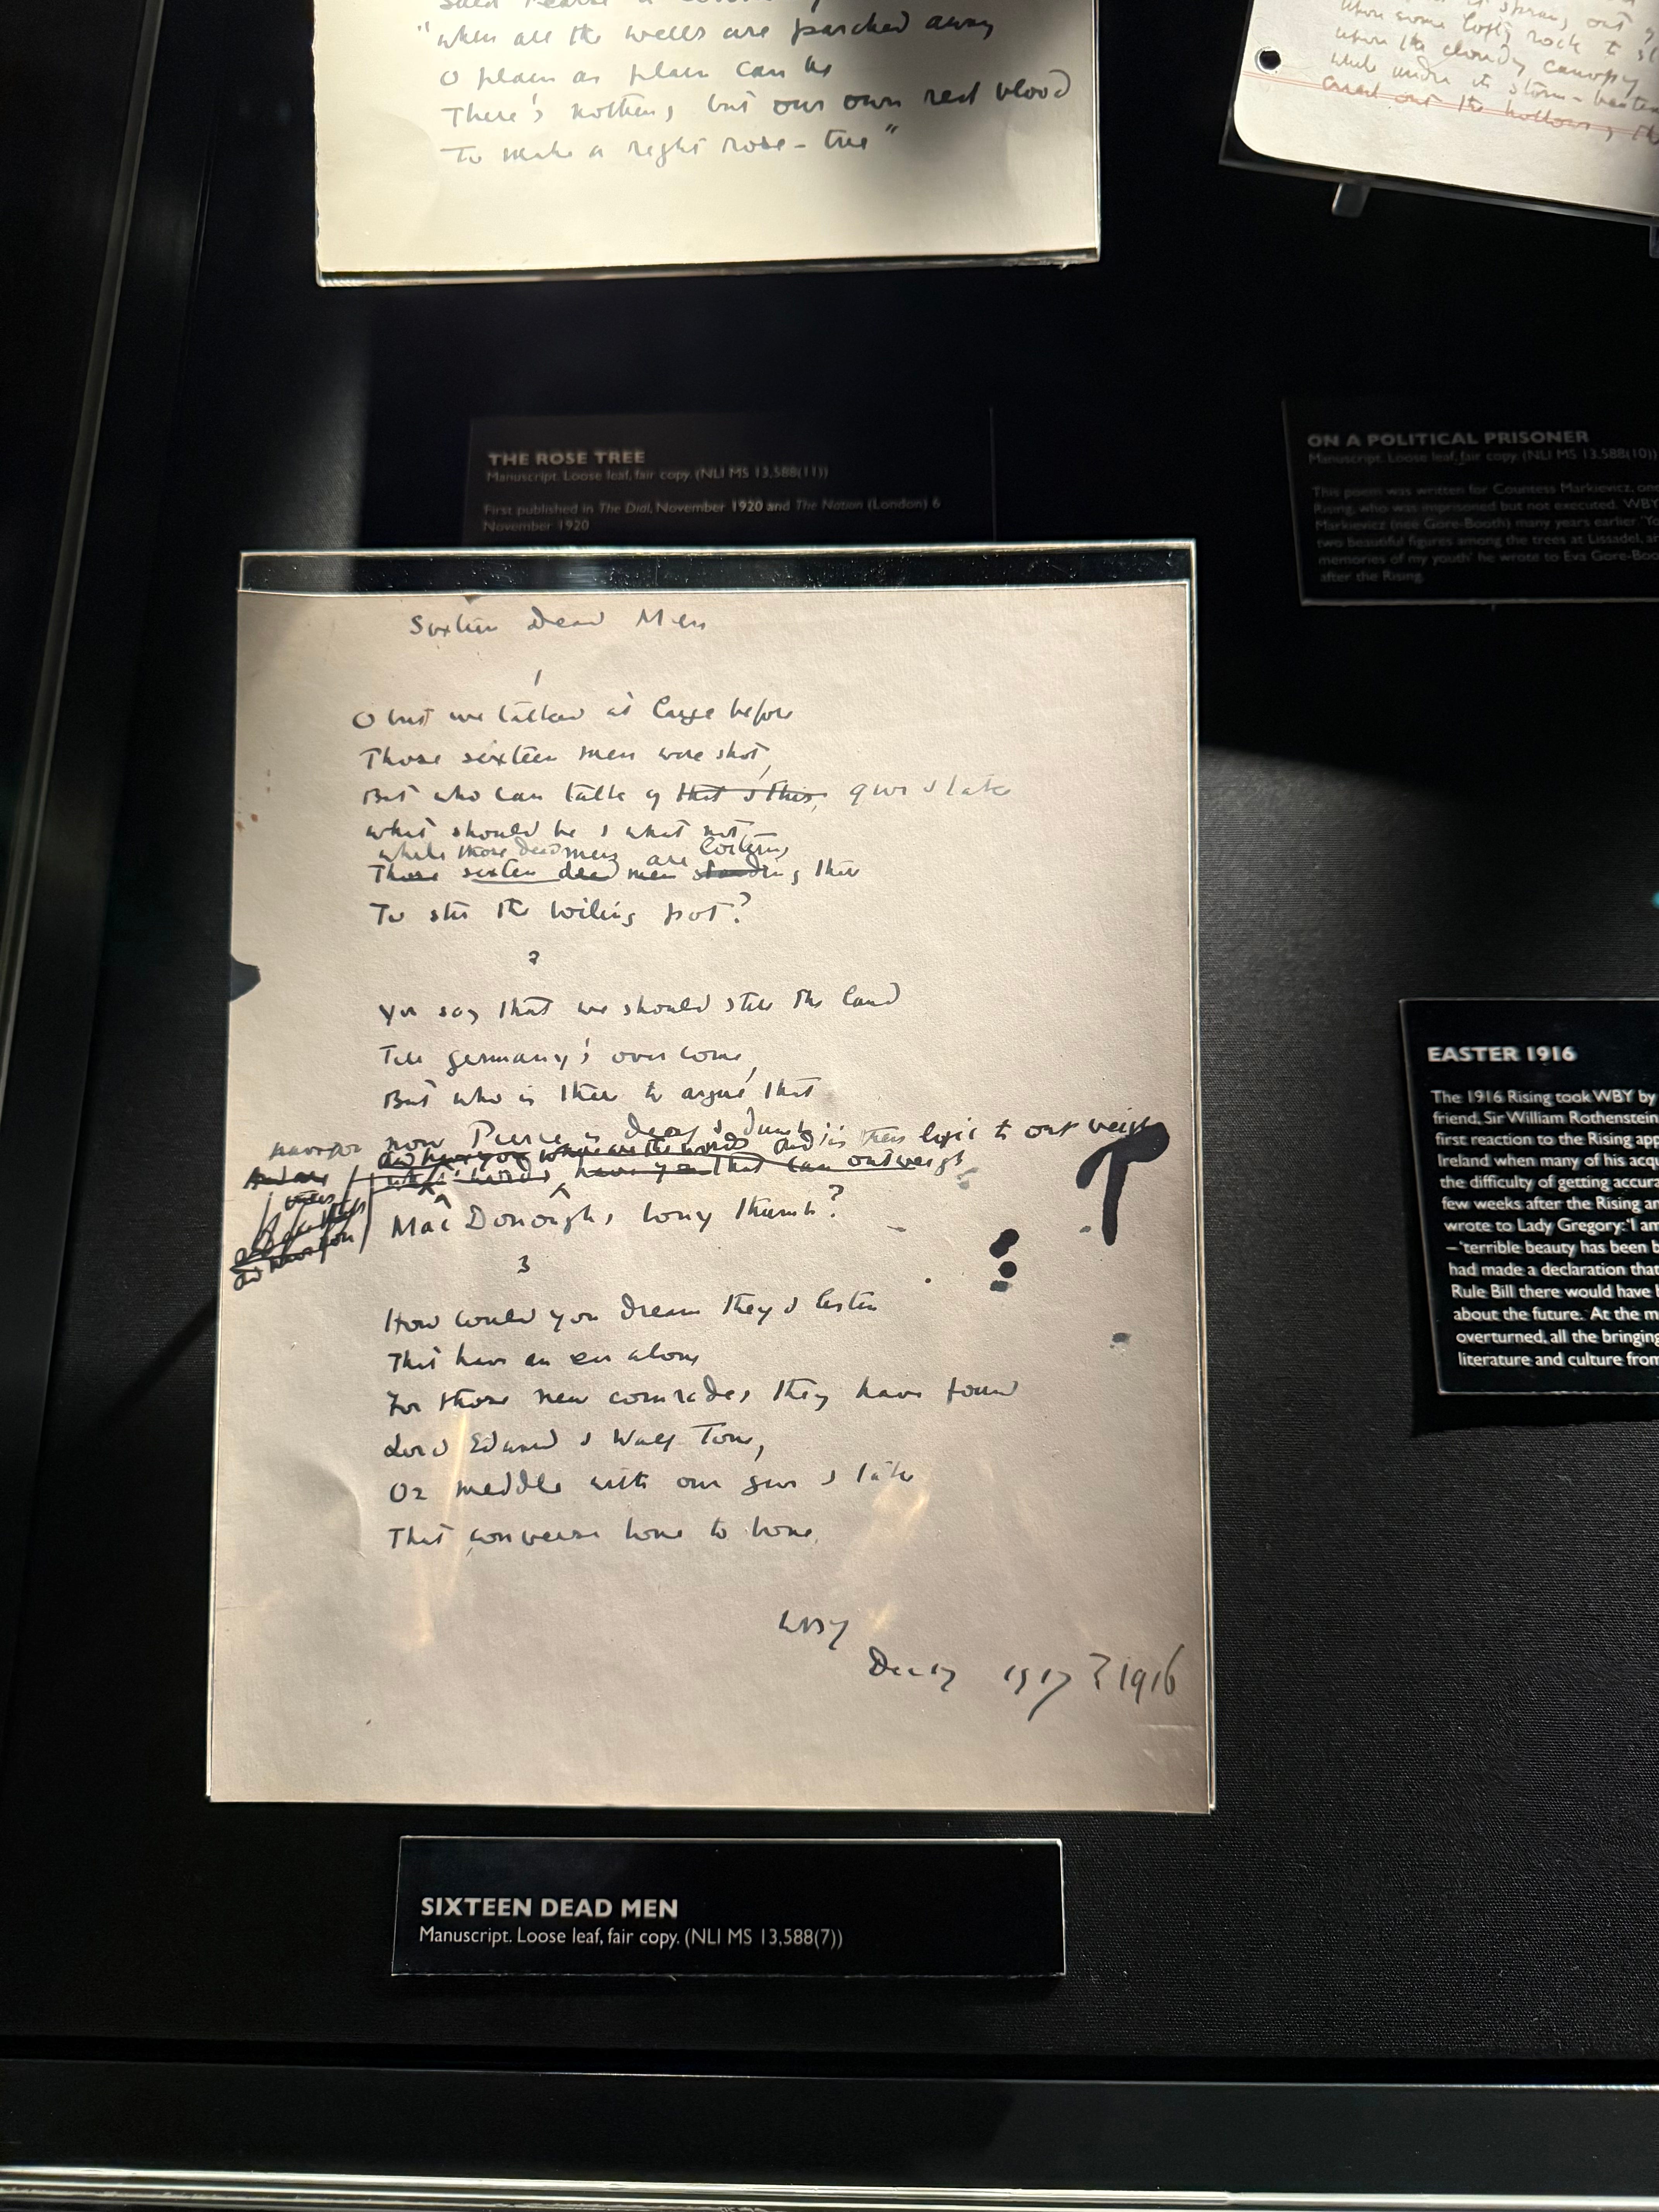 "when all the wells are parched away
O plain as plain can be
There's nothing but our own red blood
To make a right rose-tree"
upon some lofty rock to
upon the cloudy canopy
while under its storm-beaten
cried out the hollows of the
THE ROSE TREE
Manuscript. Loose leaf, fair copy. (NLI MS 13,588(11))
First published in The Dial, November 1920 and The Nation (London) 6
November 1920
ON A POLITICAL PRISONER
Manuscript. Loose leaf, fair copy. (NLI MS 13,588(10))
This poem was written for Countess Markievicz, one
Rising, who was imprisoned but not executed. WBY
Markievicz (née Gore-Booth) many years earlier. 'Yo
two beautiful figures among the trees at Lissadel, a
memories of my youth' he wrote to Eva Gore-Boo
after the Rising.
Sixteen Dead Men
1
O but we talked at large before
Those sixteen men were shot,
But who can talk of that & this, give & take
what should be & what not
while those dead men are loitering
Those sixteen dead men standing there
To stir the boiling pot?
2
You say that we should still the land
Till Germany's over come,
But who is there to argue that
now Pearse is deaf & dumb
and is their logic to out weigh
what words have you that can outweigh
MacDonough's bony thumb?
3
How could you dream they'd listen
That have an ear alone
For those new comrades they have found
Lord Edward & Wolf Tone,
Or meddle with our give & take
That converse bone to bone.
WBY
Dec 17 1917 ? 1916
EASTER 1916
The 1916 Rising took WBY by
friend, Sir William Rothenstein
first reaction to the Rising app
Ireland when many of his acqu
the difficulty of getting accura
few weeks after the Rising an
wrote to Lady Gregory: 'I am
– 'terrible beauty has been b
had made a declaration that
Rule Bill there would have b
about the future. At the m
overturned, all the bringing
literature and culture from
SIXTEEN DEAD MEN
Manuscript. Loose leaf, fair copy. (NLI MS 13,588(7))